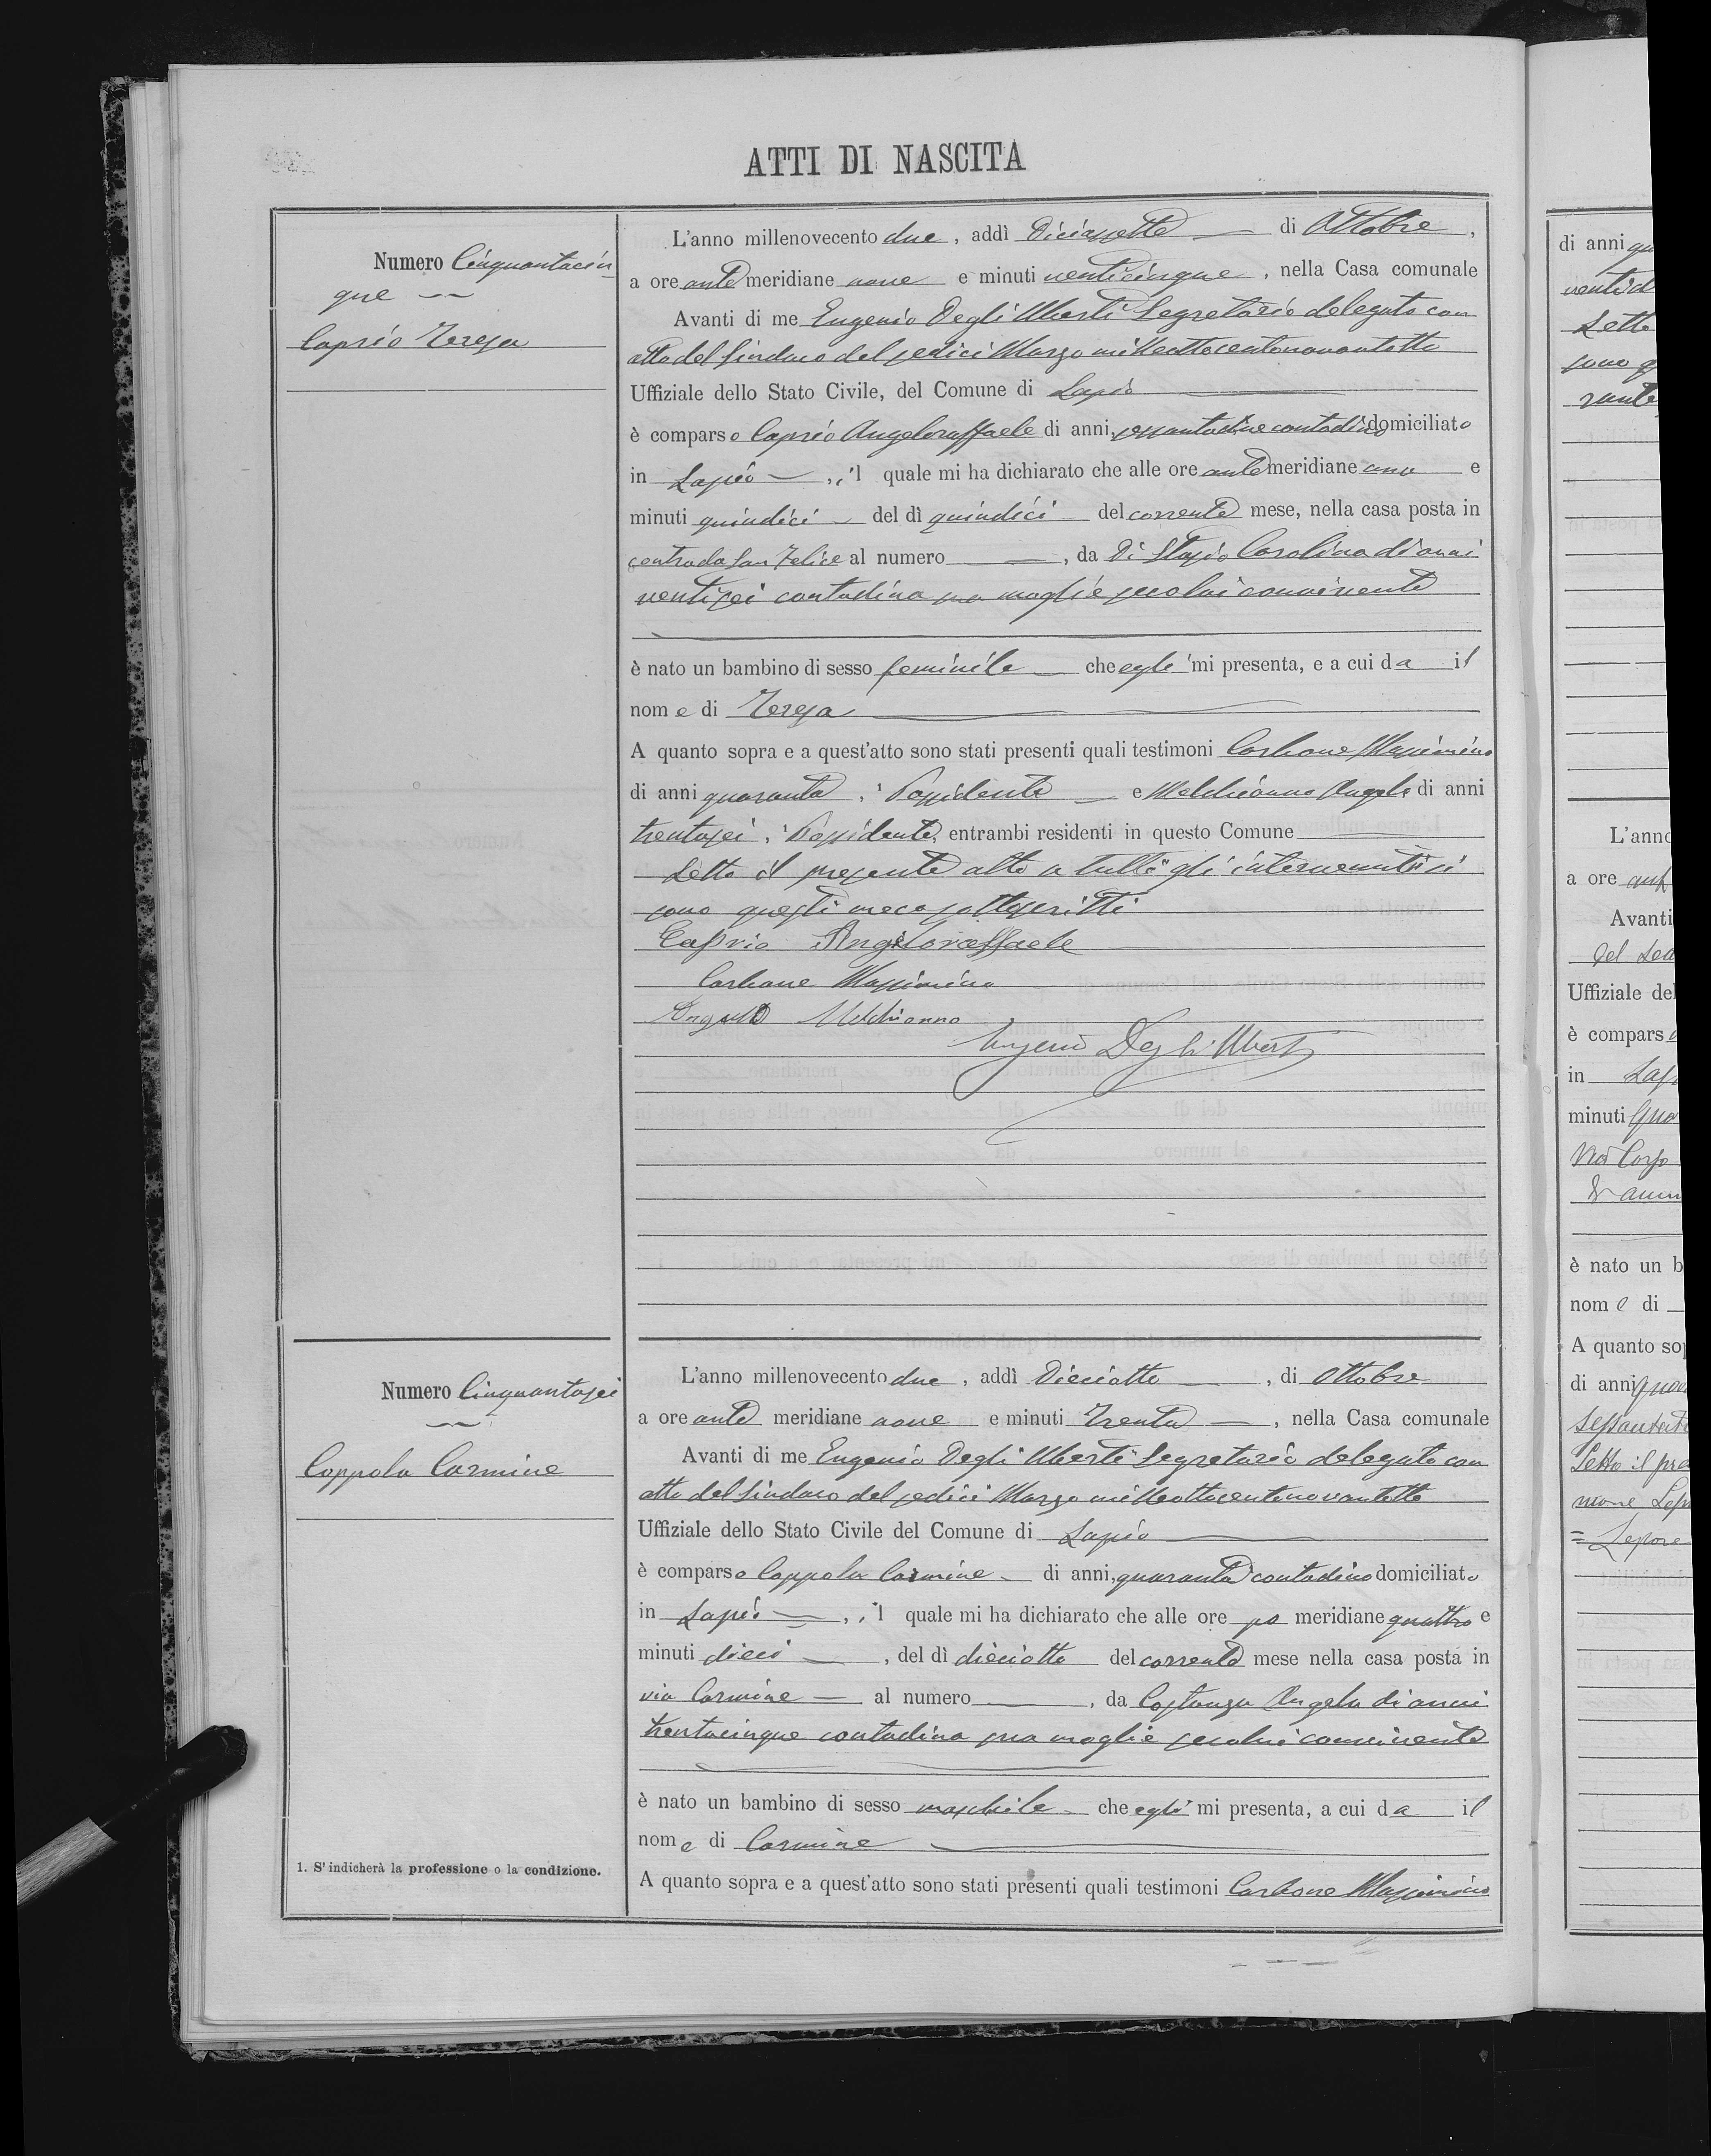 ATTI DI NASCITA
Numero Cinquantacin
que
Caprio Teresa
L'anno millenovecento due, addì Diciassette di Ottobre,
a ore ante meridiane nove e minuti venticinque, nella Casa comunale
Avanti di me Eugenio Degli Uberti Segretario delegato con
atto del Sindaco del sedici Marzo milleottocentonovantotto
Uffiziale dello Stato Civile, del Comune di Lapio
è comparso Caprio Angeloraffaele di anni, contadino domiciliato
in Lapio, il quale mi ha dichiarato che alle ore ante meridiane una e
minuti quindici del dì quindici del corrente mese, nella casa posta in
contrada San Felice al numero, da Di Stasio Carolina di anni
ventisei contadina sua moglie secolui convivente
è nato un bambino di sesso feminile che egli mi presenta, e a cui da il
nome di Teresa
A quanto sopra e a quest'atto sono stati presenti quali testimoni Carbone Massimino
di anni quaranta, Possidente e Melchionno Angelo di anni
trentasei, Possidente, entrambi residenti in questo Comune
Letto il presente atto a tutti gli intervenuti si
sono questi meco sottoscritti
Caprio Angeloraffaele
Carbone Massimino
Angelo Melchionno
Eugenio Degli Uberti
Numero Cinquantasei
Coppola Carmine
L'anno millenovecento due, addì Dieciotto, di Ottobre
a ore ante meridiane nove e minuti Trenta, nella Casa comunale
Avanti di me Eugenio Degli Uberti Segretario delegato con
atto del Sindaco del sedici Marzo milleottocentonovantotto
Uffiziale dello Stato Civile del Comune di Lapio
è comparso Coppola Carmine di anni, quaranta contadino domiciliato
in Lapio, il quale mi ha dichiarato che alle ore meridiane quattro e
minuti dieci, del dì dieciotto del corrente mese nella casa posta in
via Carmine al numero, da Costanza Angela di anni
trentacinque contadina sua moglie secolui convivente
è nato un bambino di sesso maschile che egli mi presenta, a cui da il
nome di Carmine
1. S'indicherà la professione o la condizione.
A quanto sopra e a quest'atto sono stati presenti quali testimoni Carbone Massimino
di anni
Sette
L'anno
a ore
Avanti
Uffiziale del
è compars
in
minuti
Via Corso
è nato un b
nome di
A quanto sop
di anni
Letto il pre
= Lepore